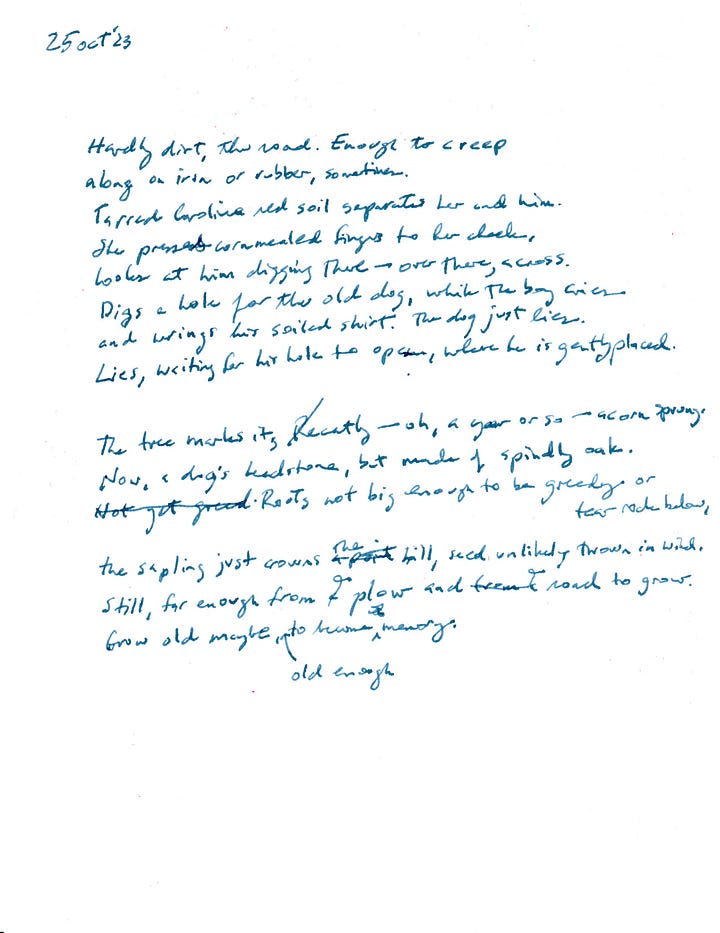 25 oct '23
Hardly dirt, the road. Enough to creep
along on iron or rubber, sometimes.
Tarred Carolina red soil separates her and him.
She presses cornmealed fingers to her cheek,
looks at him digging there — over there, across.
Digs a hole for the old dog, while the boy cries
and wrings his soiled shirt. The dog just lies.
Lies, waiting for his hole to open, where he is gently placed.
The tree marks it, Recently — oh, a year or so — acorn sprung.
Now, a dog's headstone, but made of spindly oak.
Not yet greed. Roots not big enough to be greedy or
tear rock below,
the sapling just crowns the hill, seed unlikely thrown in wind.
Still, far enough from plow and road to grow.
Grow old maybe, to become memory.
old enough